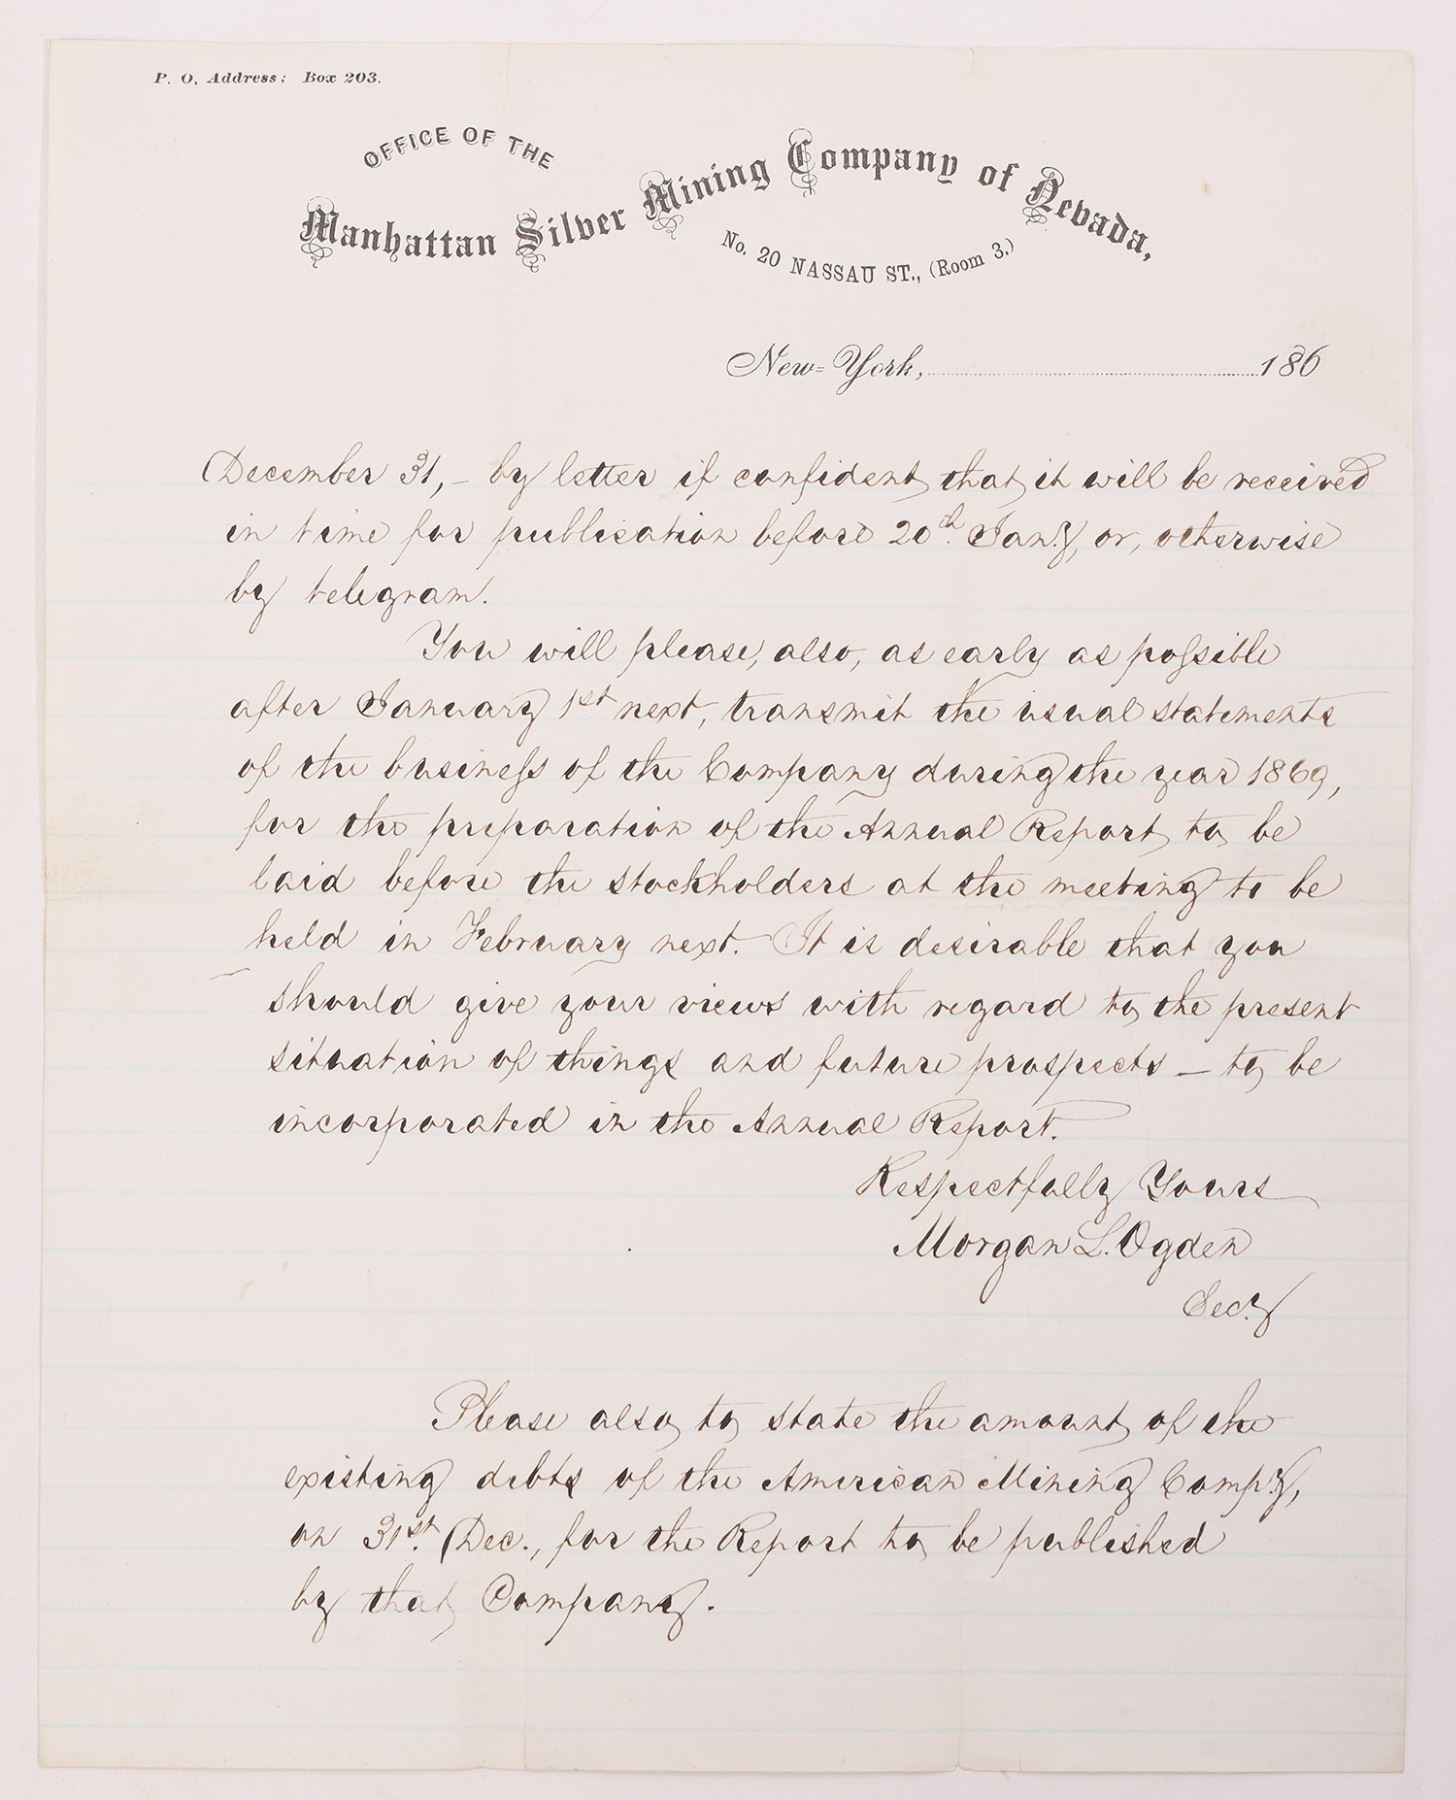 P. O. Address: Box 203.
OFFICE OF THE
Manhattan Silver Mining Company of Nevada,
No. 20 NASSAU ST., (Room 3.)
New-York, 186
December 31, – by letter if confident that it will be received
in time for publication before 20th. Jan.y, or, otherwise
by telegram.
You will please, also, as early as possible
after January 1st next, transmit the usual statements
of the business of the Company during the year 1869,
for the preparation of the Annual Report to be
laid before the stockholders at the meeting to be
held in February next. It is desirable that you
should give your views with regard to the present
situation of things and future prospects – to be
incorporated in the Annual Report.
Respectfully Yours
Morgan L. Ogden
Sec.y
Please also to state the amount of the
existing debts of the American Mining Comp.y,
on 31st. Dec., for the Report to be published
by that Company.